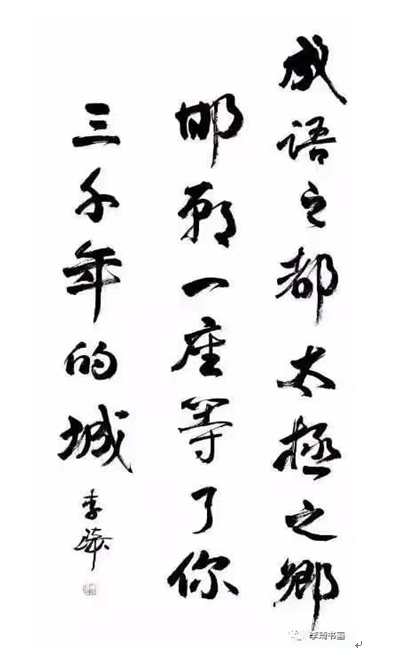 成语之都太極之鄉
邯郸一座等了你
三千年的城
李琦
李琦书画